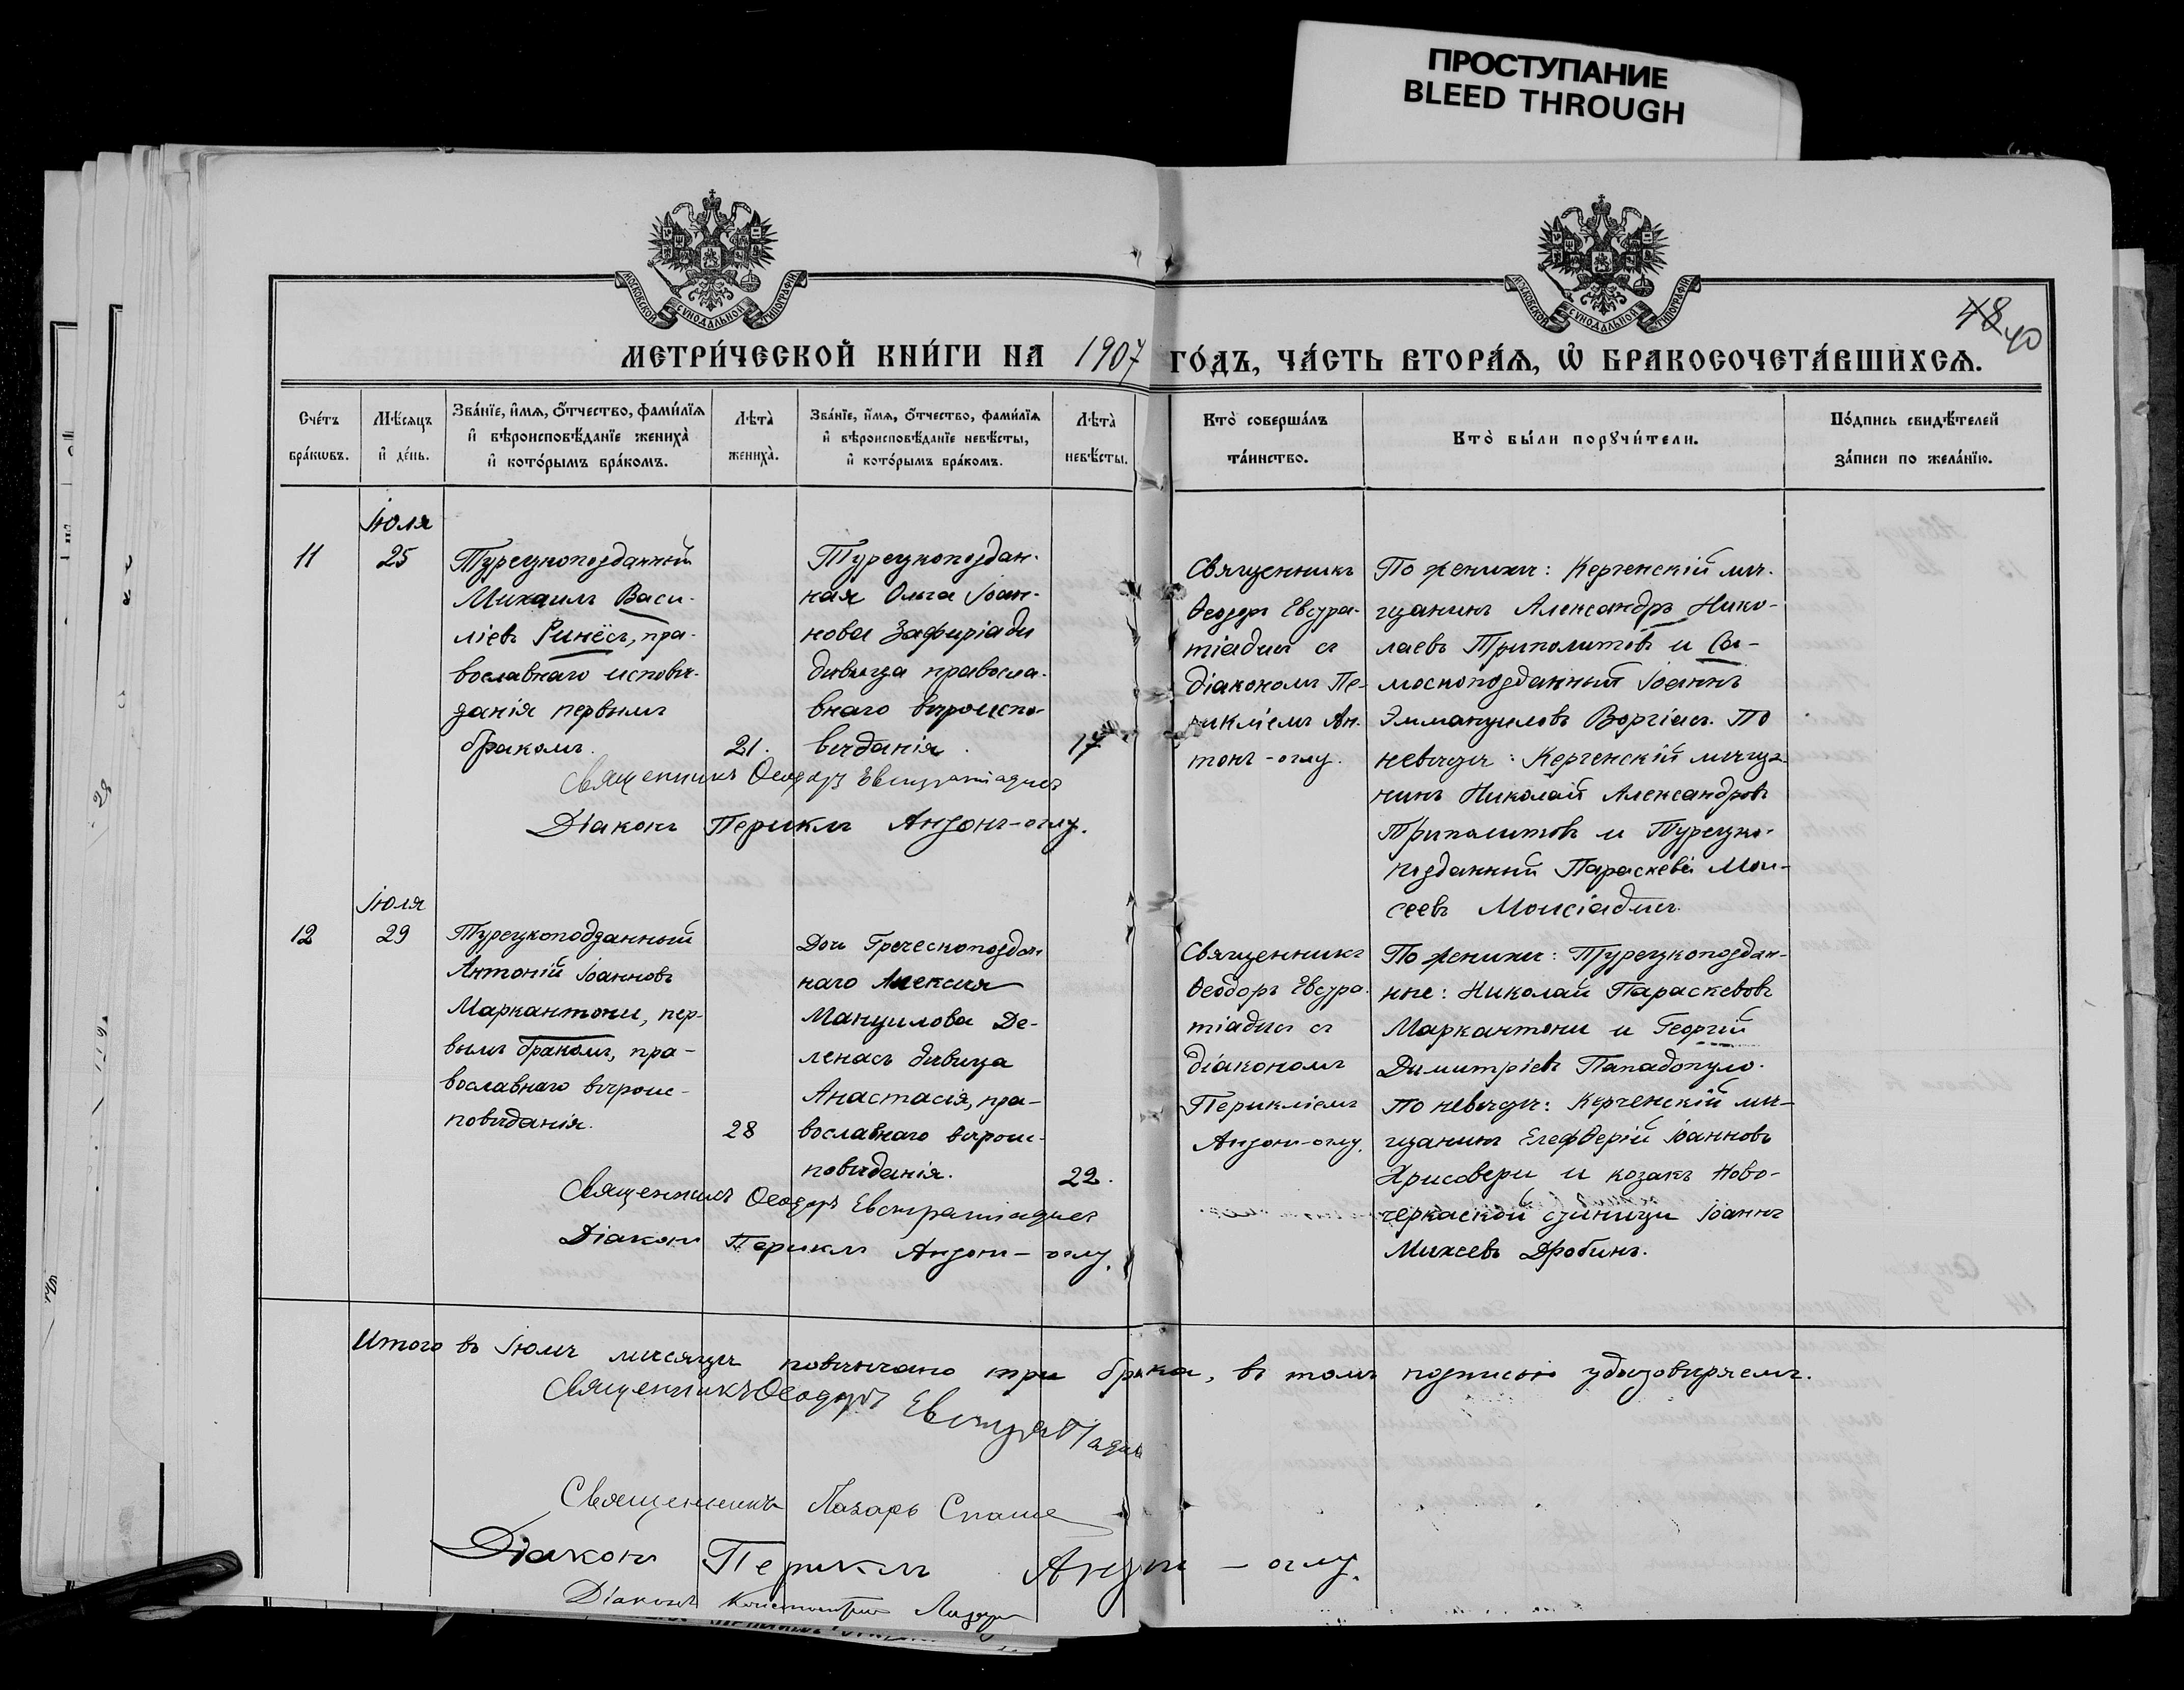 ПРОСТУПАНИЕ
BLEED THROUGH
МОСКОВСКОЙ СѴНОДАЛЬНОЙ ТИПОГРАФІИ
МОСКОВСКОЙ СѴНОДАЛЬНОЙ ТИПОГРАФІИ
48 40
МЕТРИ́ЧЕСКОЙ КНИ́ГИ НА 1907 ГО́ДЪ, ЧА́СТЬ ВТОРА́Ѧ, Ѽ БРАКОСОЧЕТА́ВШИХСѦ.
Сче́тъ
бра́кѡвъ.
Мѣ́сяцъ
и҆ де́нь.
Зва́нїе, и҆́мѧ, ѻ҆́тчество, фами́лїѧ
и҆ вѣроисповѣ́данїе жениха̀
и҆ кото́рымъ бра́комъ.
Лѣта̀
жениха̀.
Зва́нїе, и҆́мѧ, ѻ҆́тчество, фами́лїѧ
и҆ вѣроисповѣ́данїе невѣ́сты,
и҆ кото́рымъ бра́комъ.
Лѣта̀
невѣ́сты.
Кто̀ соверша́лъ
та́инство.
Кто̀ бы́ли порꙋчи́тели.
По́дпись свидѣ́телей
за́писи по жела́нїю.
11
Іюля
25
Турецкоподданный
Михаилъ Васи-
ліевъ Ринёсъ, пра-
вославнаго исповѣ-
данія первымъ
бракомъ.
21.
Турецкоподдан-
ная Ольга Іоан-
нова Зафиріади
дѣвица правосла-
внаго вѣроиспо-
вѣданія.
17
Священникъ
Ѳеодоръ Евстра-
тіадисъ съ
діакономъ Пе-
рикліемъ Ан-
тонъ-оглу.
По женихѣ: Керченскій мѣ-
щанинъ Александръ Нико-
лаевъ Триполитовъ и Са-
москоподданный Іоаннъ
Эммануиловъ Воргіасъ. По
невѣстѣ: Керченскій мѣща-
нинъ Николай Александровъ
Триполитовъ и Турецко-
подданный Параскева Мои-
сеевъ Моисіадисъ.
Священникъ Ѳеодоръ Евстратіадисъ
Діаконъ Периклъ Антонъ-оглу.
12
Іюля
29
Турецкоподданный
Антоній Іоанновъ
Маркантони, пер-
вымъ бракомъ, пра-
вославнаго вѣроис-
повѣданія.
28
Дочь Греческоподдан
наго Алексія
Мануилова Де-
ленасъ дѣвица
Анастасія, пра-
вославнаго вѣроис-
повѣданія.
22.
Священникъ
Ѳеодоръ Евстра-
тіадисъ съ
діакономъ
Перикліемъ
Антонъ-оглу.
По женихѣ: Турецкоподдан-
ные: Николай Параскевовъ
Маркантони и Георгій
Димитріевъ Пападопуло.
По невѣстѣ: Керченскій мѣ-
щанинъ Елефѳерій Іоанновъ
Хрисовери и козакъ Ново-
черкаской станицы Іоаннъ
Михеевъ Дробинъ.
Священникъ Ѳеодоръ Евстратіадисъ
Діаконъ Периклъ Антонъ-оглу.
Итого въ Іюлѣ мѣсяцѣ повѣнчано три брака, въ томъ подписью удостовѣряемъ.
Священникъ Ѳеодоръ Евстратіадисъ
Священникъ Лазарь Спаше
Діаконъ Периклъ Антонъ-оглу.
Діаконъ Константинъ